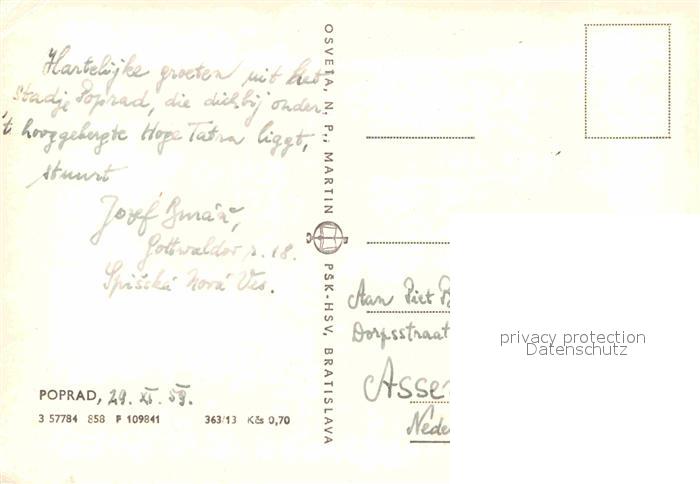 Hartelijke groeten uit het
stadje Poprad, die dichtbij onder
't hooggebergte Hoge Tatra liggt,
stuurt
Jozef
Gottwaldov 18.
Spišská Nová Ves.
POPRAD, 29. XI. 59.
3 57784 858 F 109841 363/13 Kčs 0,70
OSVETA, N. P., MARTIN
PŠK-HSV, BRATISLAVA
Aan Piet
Dorpsstraat
Assen
Nede
privacy protection
Datenschutz